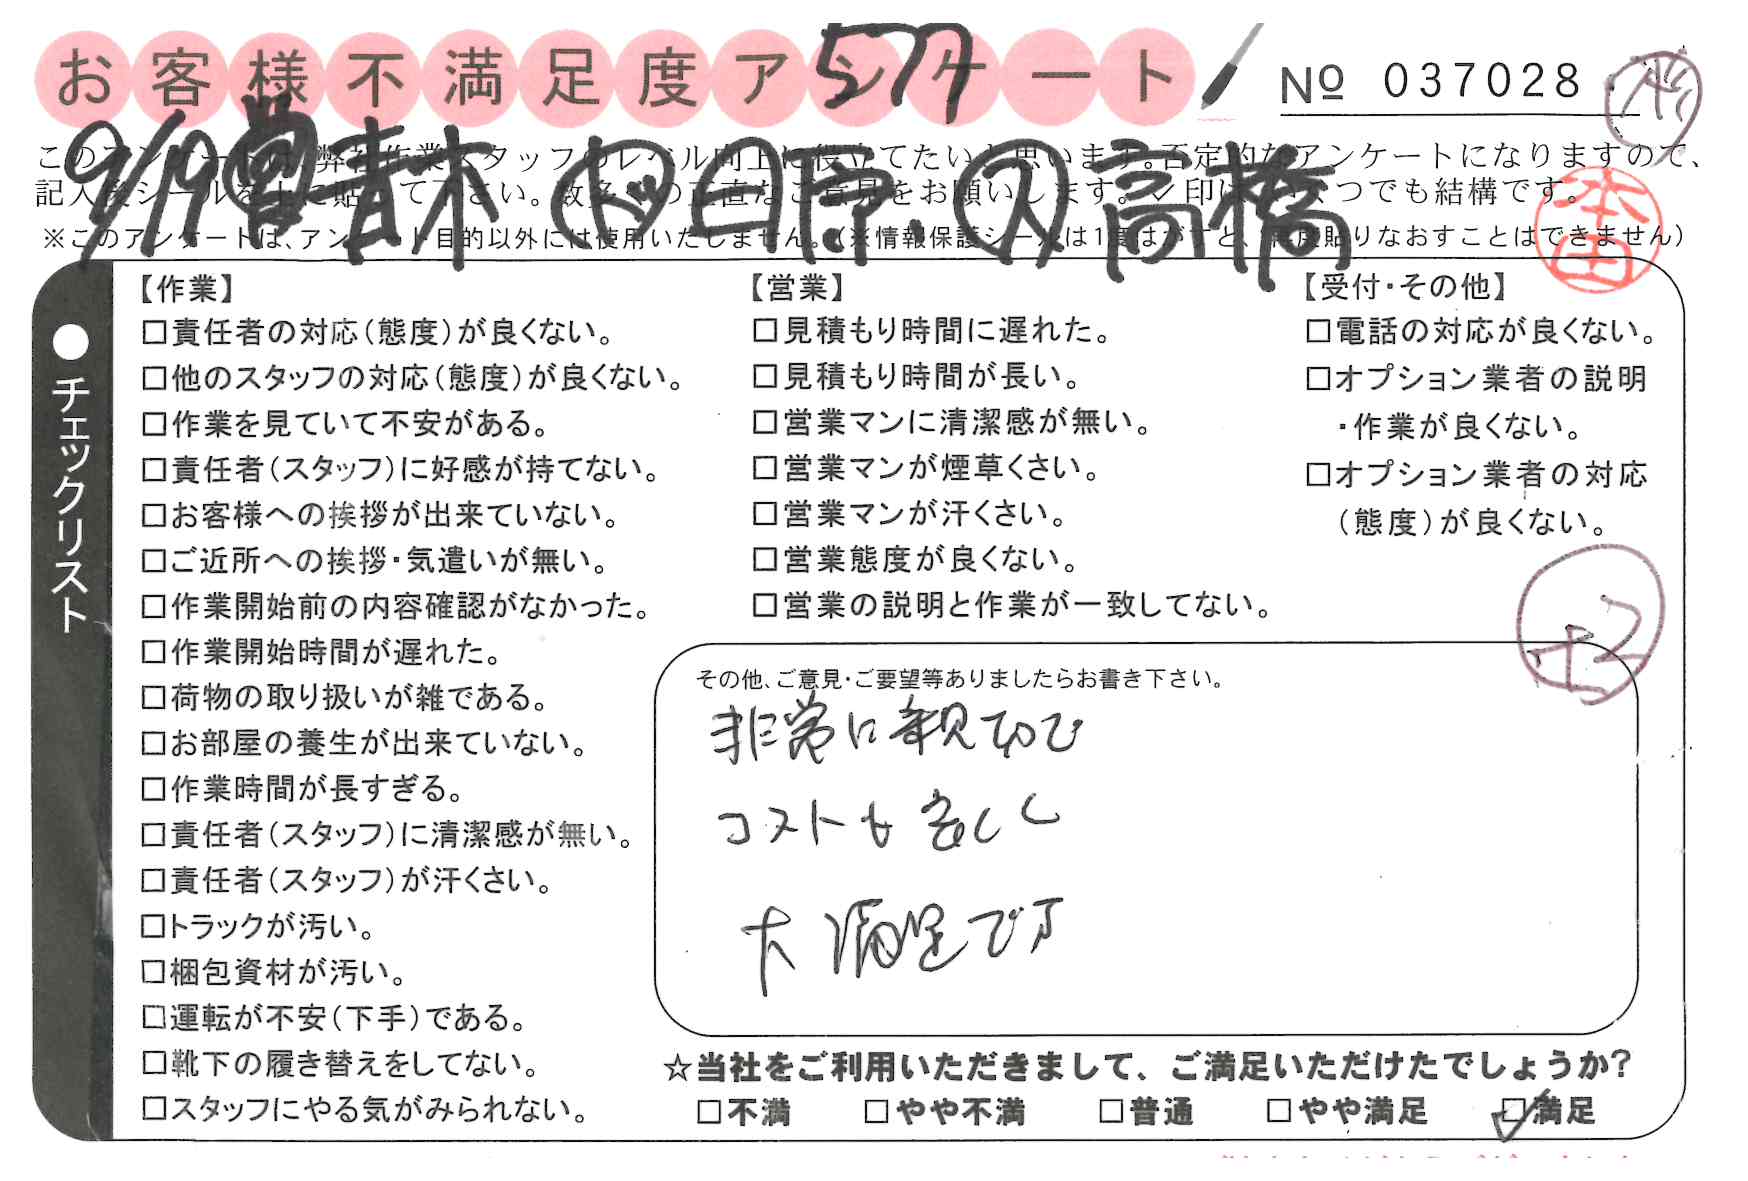 お客様不満足度アンケート
577
№ 037028
9/19 営 青木 ド 日原、ス 高橋
このアンケートは、弊社作業スタッフのレベル向上に役立てたいと思います。否定的なアンケートになりますので、
記入後シールを上に貼って下さい。数多くの正直なご意見をお願いします。✓印はいくつでも結構です。
※このアンケートは、アンケート目的以外には使用いたしません。(※情報保護シールは1度はがすと、再度貼りなおすことはできません)
本田
●チェックリスト
【作業】
□責任者の対応(態度)が良くない。
□他のスタッフの対応(態度)が良くない。
□作業を見ていて不安がある。
□責任者(スタッフ)に好感が持てない。
□お客様への挨拶が出来ていない。
□ご近所への挨拶・気遣いが無い。
□作業開始前の内容確認がなかった。
□作業開始時間が遅れた。
□荷物の取り扱いが雑である。
□お部屋の養生が出来ていない。
□作業時間が長すぎる。
□責任者(スタッフ)に清潔感が無い。
□責任者(スタッフ)が汗くさい。
□トラックが汚い。
□梱包資材が汚い。
□運転が不安(下手)である。
□靴下の履き替えをしてない。
□スタッフにやる気がみられない。
【営業】
□見積もり時間に遅れた。
□見積もり時間が長い。
□営業マンに清潔感が無い。
□営業マンが煙草くさい。
□営業マンが汗くさい。
□営業態度が良くない。
□営業の説明と作業が一致してない。
【受付・その他】
□電話の対応が良くない。
□オプション業者の説明
・作業が良くない。
□オプション業者の対応
(態度)が良くない。
+2
その他、ご意見・ご要望等ありましたらお書き下さい。
非常に親切で
コストも良くし
大満足です
☆当社をご利用いただきまして、ご満足いただけたでしょうか?
□不満 □やや不満 □普通 □やや満足 ☑満足